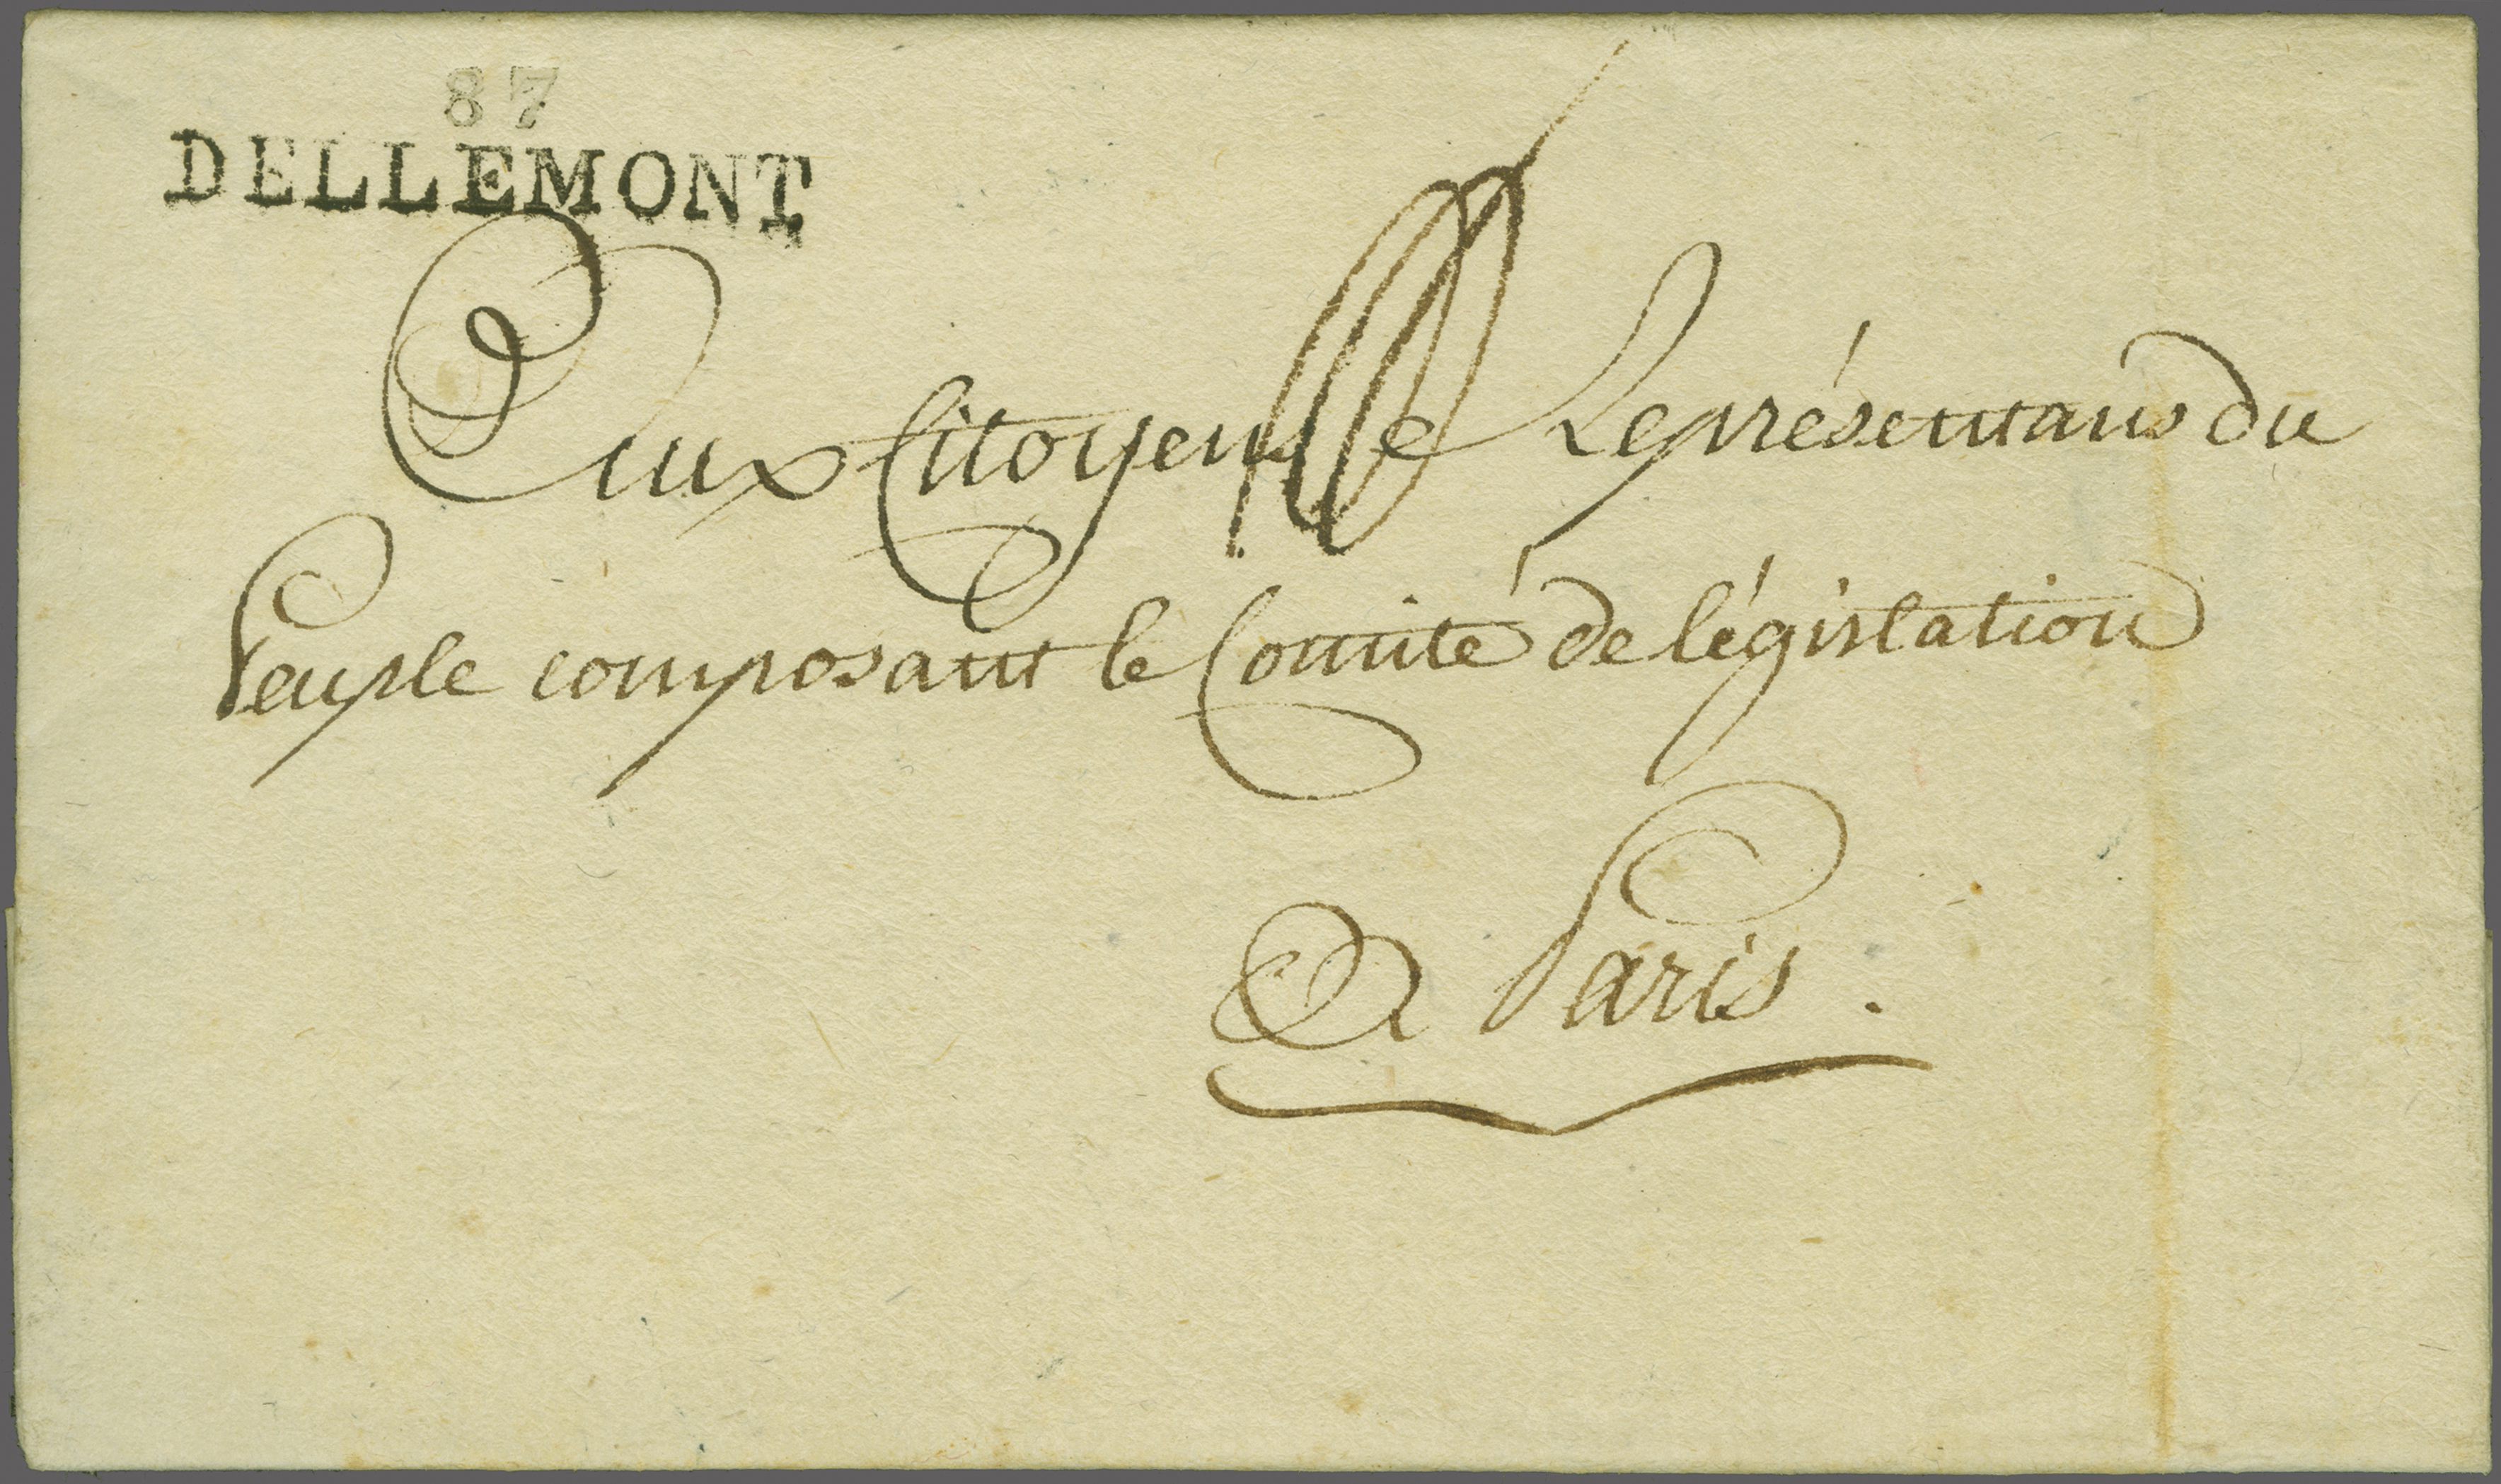 87
DELLEMONT
Aux Citoyens Représentans du
Peuple composant le Comité de législation
A Paris.